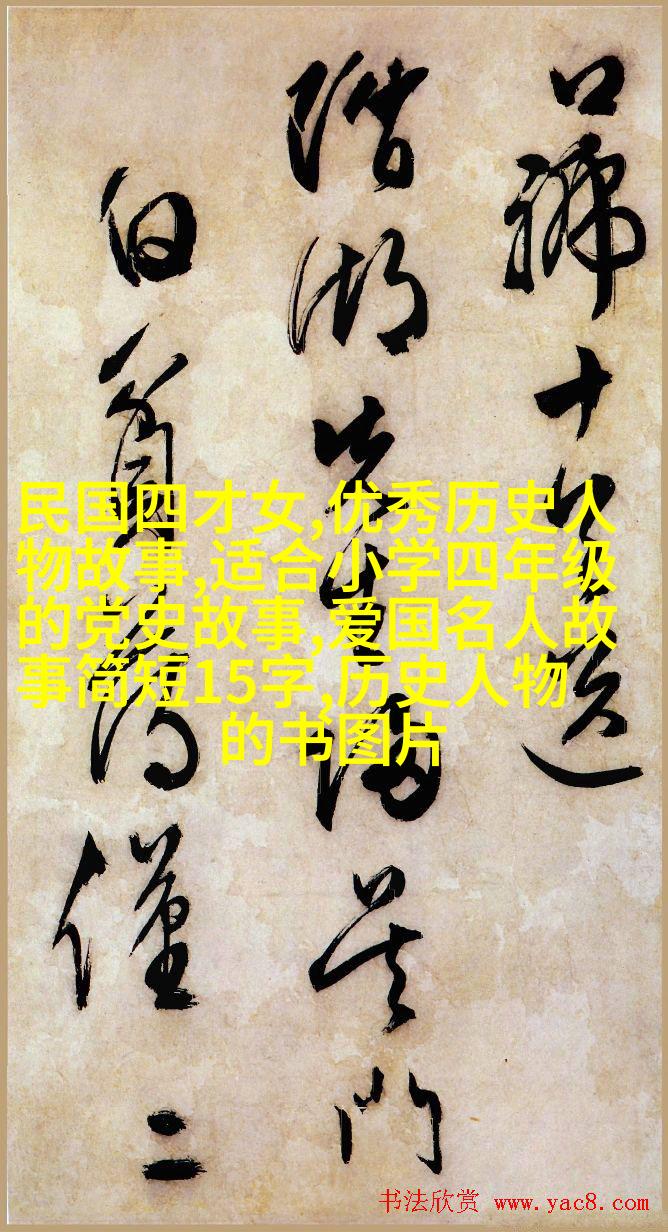 口號十送
階湖先生歸吳門
白僅二
民国四才女,优秀历史人
物故事,适合小学四年级
的党史故事,爱国名人故
事简短15字,历史人物
的书图片
书法欣赏 www.yac8.com